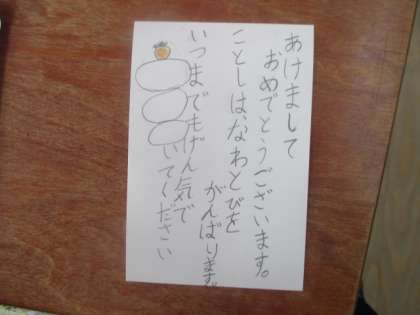 あけまして
おめでとうございます。
ことしは、なわとびを
がんばります。
いつまでもげん気で
いてください